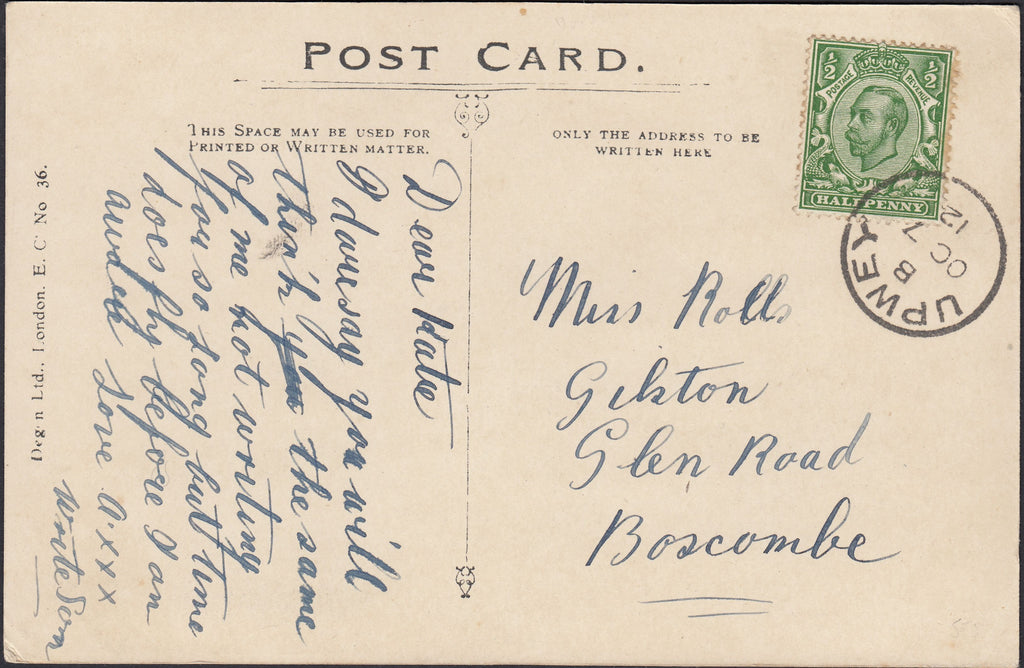 POST CARD.
THIS SPACE MAY BE USED FOR
PRINTED OR WRITTEN MATTER.
ONLY THE ADDRESS TO BE
WRITTEN HERE
Dear Kate
I daresay you will
think you the same
of me not writing
for so long but time
does fly before I am
Love A. x x x
Write Son
Miss Rolls
Glen Road
Boscombe
½ ½
POSTAGE REVENUE
HALFPENNY
UPWEY
B
OC 7
12
Degen Ltd., London. E. C No 36.